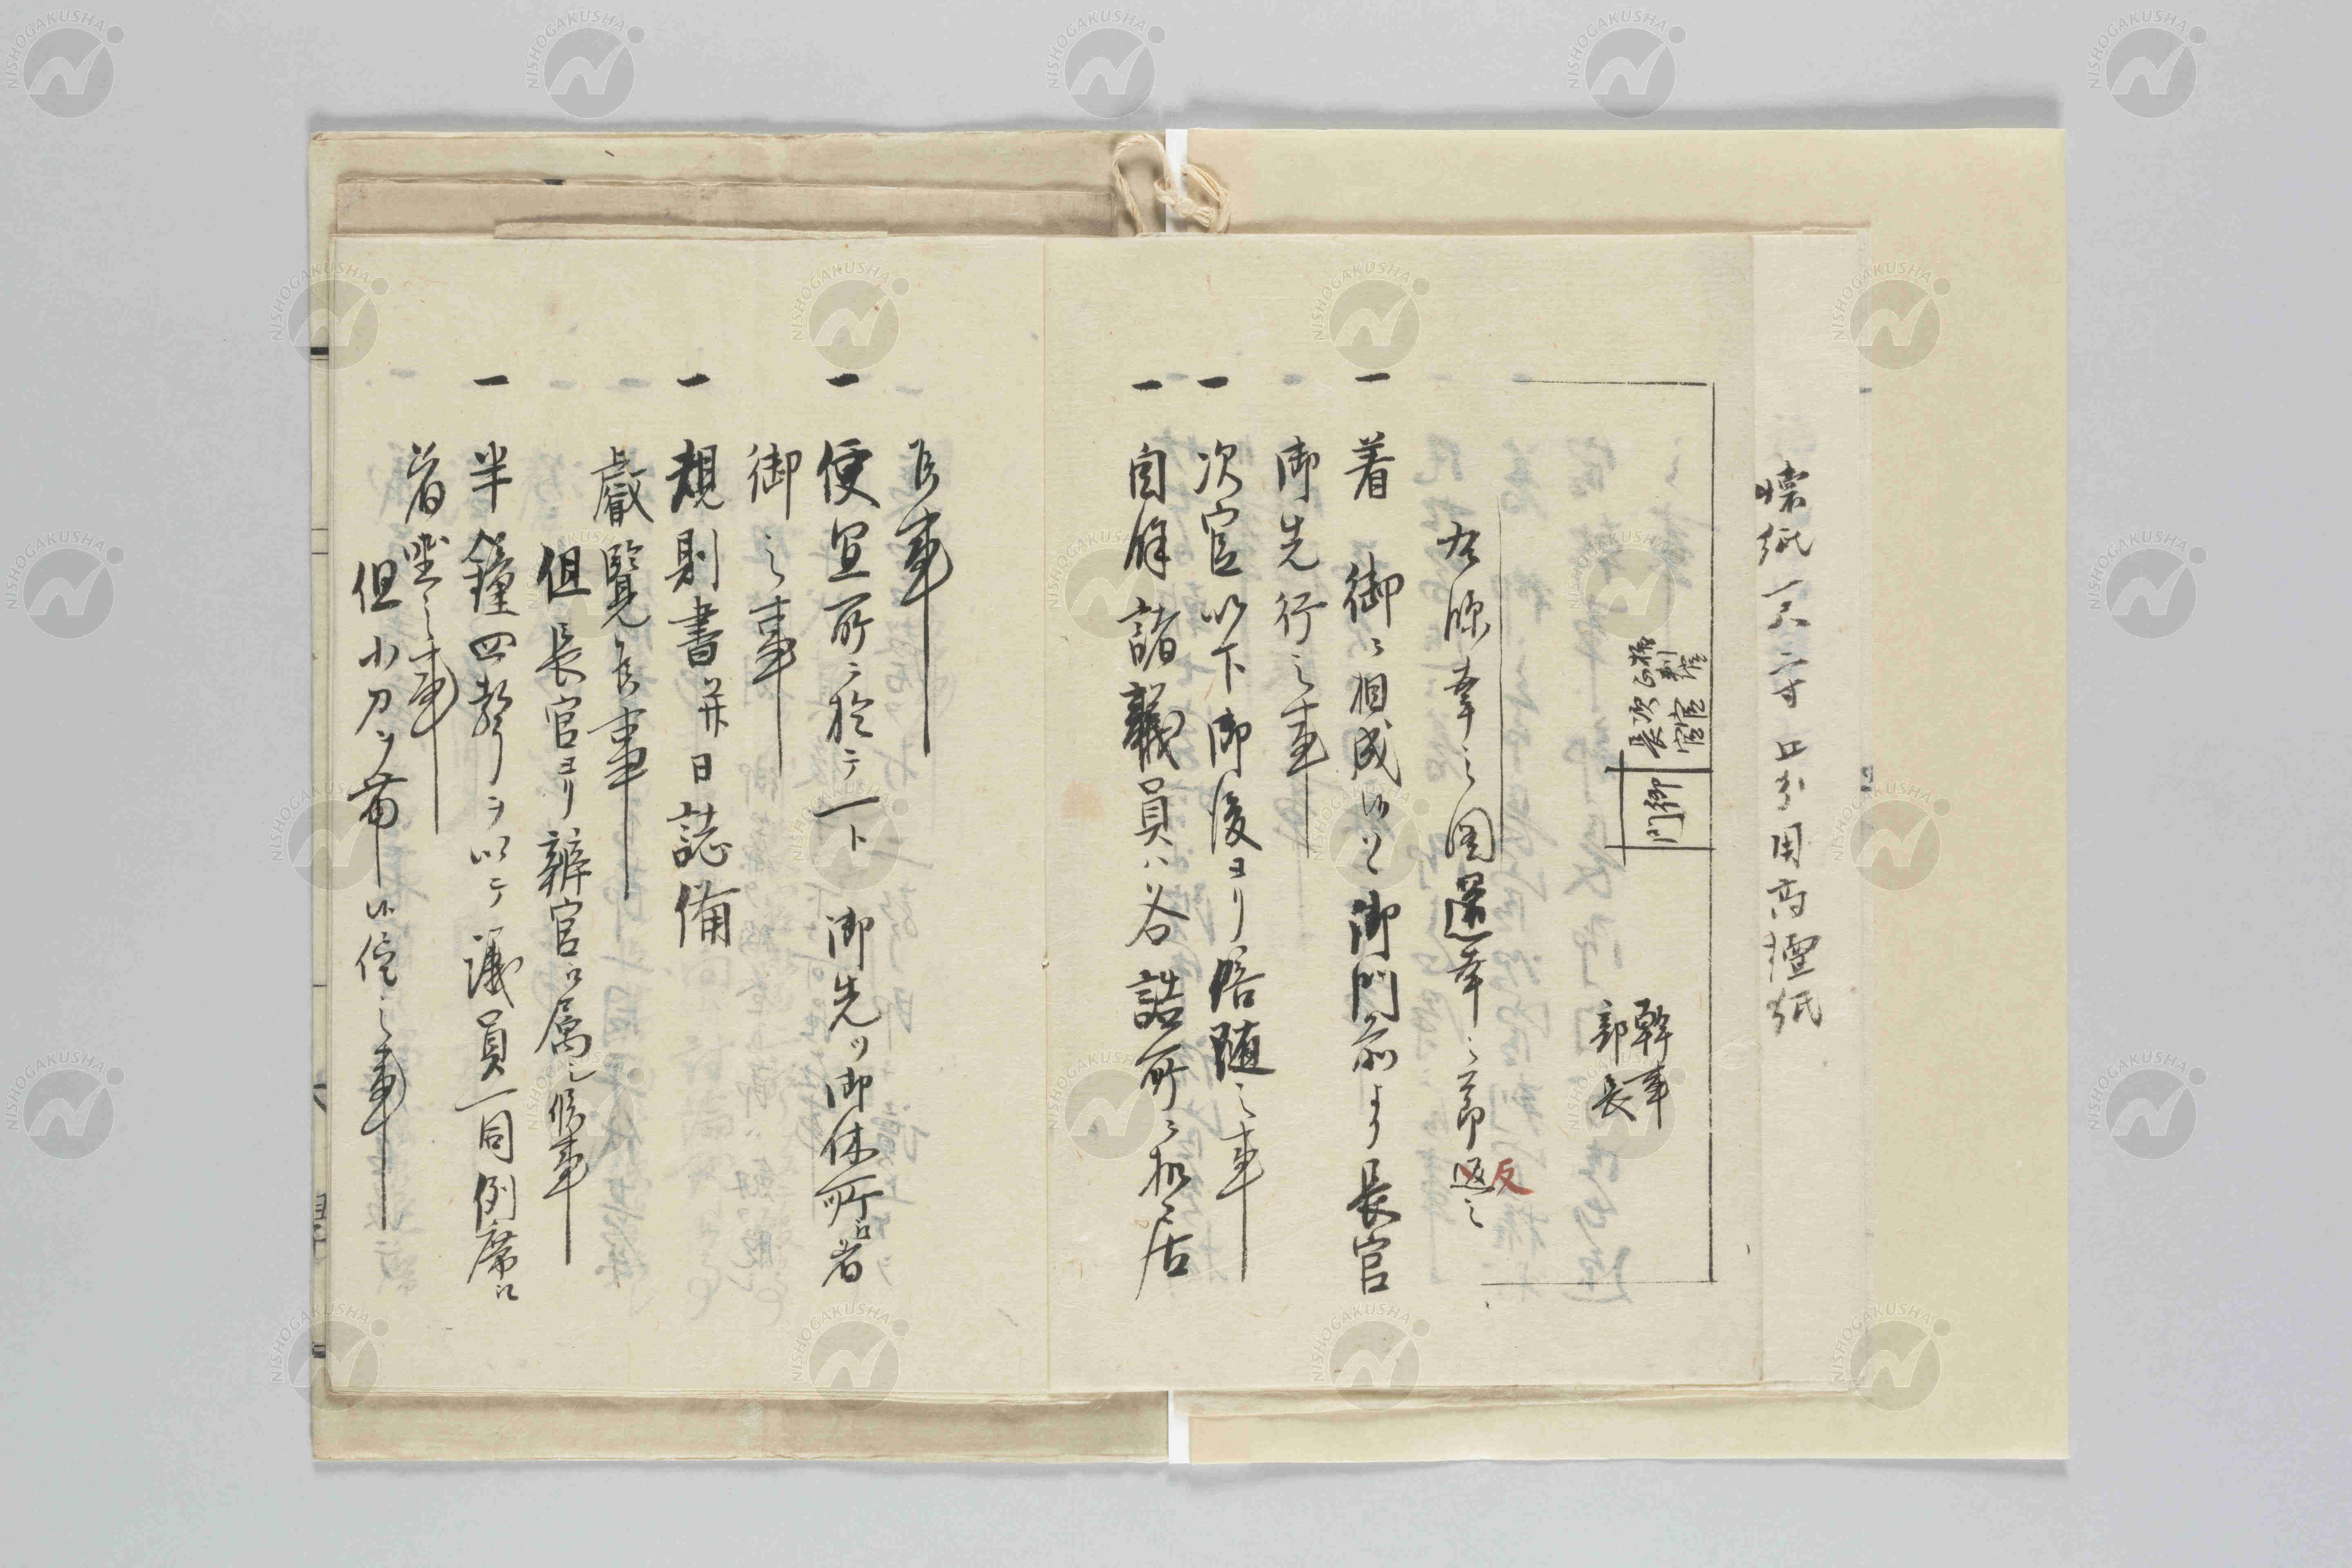 懐紙一尺二寸五分用高檀紙
長官
次官
御門
幹事
部長
右臨幸之図還幸之節返之
反
一 着 御ニ相成候ハヽ御門前より長官
御先行之事
一 次官以下御後ヨリ陪随之事
一 自餘諸議員ハ各詰所ニ扣居
候事
一 便宜所ニ於テ一ト 御先ツ御休所江着
御之事
一 規則書并日誌備
叡覧候事
但長官ヨリ辨官江属シ候事
一 半鐘四聲ヲ以テ議員一同例席江
着坐之事
但小刀ヲ帯
NISHOGAKUSHA